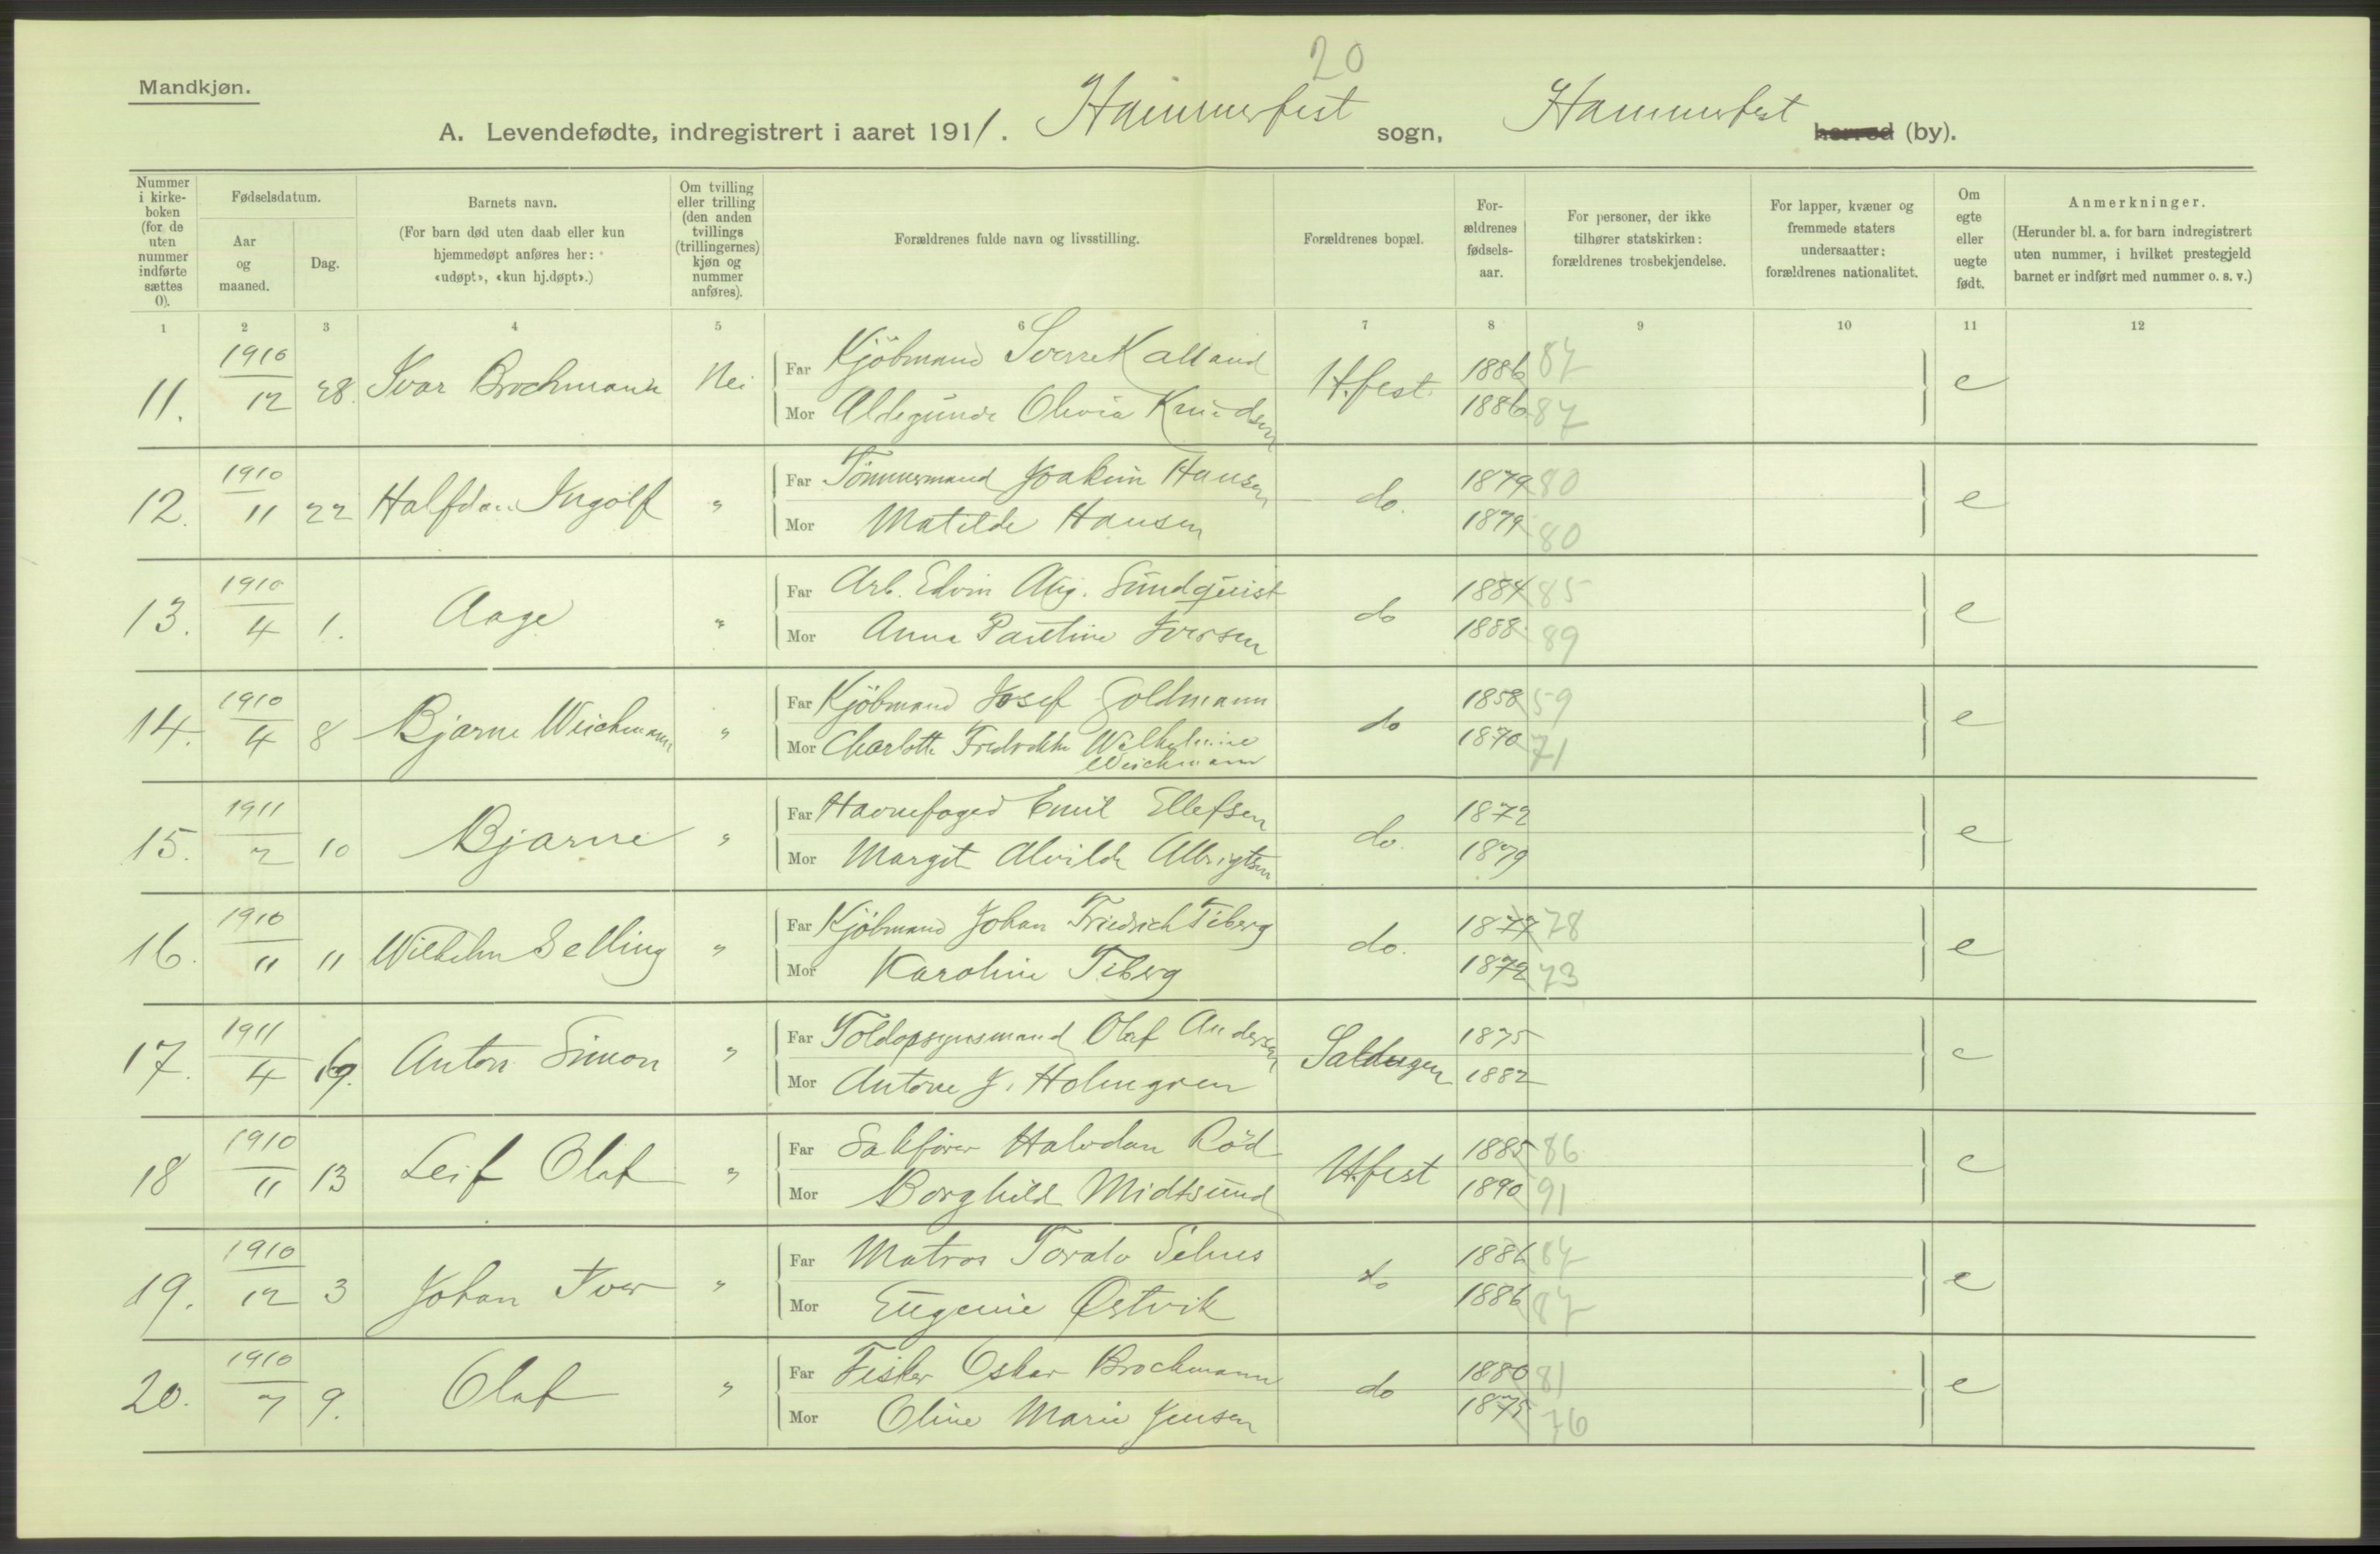 20
Mandkjøn.
A. Levendefødte, indregistrert i aaret 1911. Hammerfest sogn, Hammerfest herred (by).
Nummer i kirke-boken (for de uten nummer indførte sættes 0).
Fødselsdatum.
Aar og maaned.
Dag.
Barnets navn.
(For barn død uten daab eller kun hjemmedøpt anføres her: «udøpt», «kun hj.døpt».)
Om tvilling eller trilling (den anden tvillings (trillingernes) kjøn og nummer anføres).
Forældrenes fulde navn og livsstilling.
Forældrenes bopæl.
For-ældrenes fødsels-aar.
For personer, der ikke tilhører statskirken: forældrenes trosbekjendelse.
For lapper, kvæner og fremmede staters undersaatter: forældrenes nationalitet.
Om egte eller uegte født.
Anmerkninger.
(Herunder bl. a. for barn indregistrert uten nummer, i hvilket prestegjeld barnet er indført med nummer o. s. v.)
1 2 3 4 5 6 7 8 9 10 11 12
11. 1910/12 28. Ivar Brochmann Nei Far Kjöbmand Sverre Kalland H.fest. 1886 87 e
Mor Aldegunde Olivia Knudsen 1886 87
12. 1910/11 22 Halfdan Ingolf " Far Tömmermand Joakim Hansen do. 1879 80 e
Mor Matilde Hansen 1879 80
13. 1910/4 1. Aage " Far Arb. Edvin Aug. Sundquist do 1884 85 e
Mor Anna Pauline Iversen 1888 89
14. 1910/4 8 Bjarne Weichmann " Far Kjöbmand Josef Goldmann do 1858 59 e
Mor Charlotte Fredrikke Wilhelmine Weichmann 1870 71
15. 1911/2 10 Bjarne " Far Havnefoged Emil Ellefsen do. 1872 e
Mor Margit Alvilde Albrigtsen 1879
16. 1910/11 11 Wilhelm Selling " Far Kjöbmand Johan Friedrich Tiberg do. 1877 78 e
Mor Karoline Tiberg 1872 73
17. 1911/4 19. Anton Simon " Far Toldopsynsmand Olaf Andersen 1875 e
Mor Antone J. Holmgren 1882
18 1910/11 13 Leif Olaf " Far Sakförer Halvdan Röd H.fest 1885 86 e
Mor Borghild Midtsund 1890 91
19. 1910/12 3 Johan Iver " Far Matros Toralv Selnes do 1886 87 e
Mor Eugenie Østvik 1886 87
20. 1910/7 9. Olaf " Far Fisker Oskar Brochmann do 1880 81 e
Mor Oline Marie Jensen 1875 76